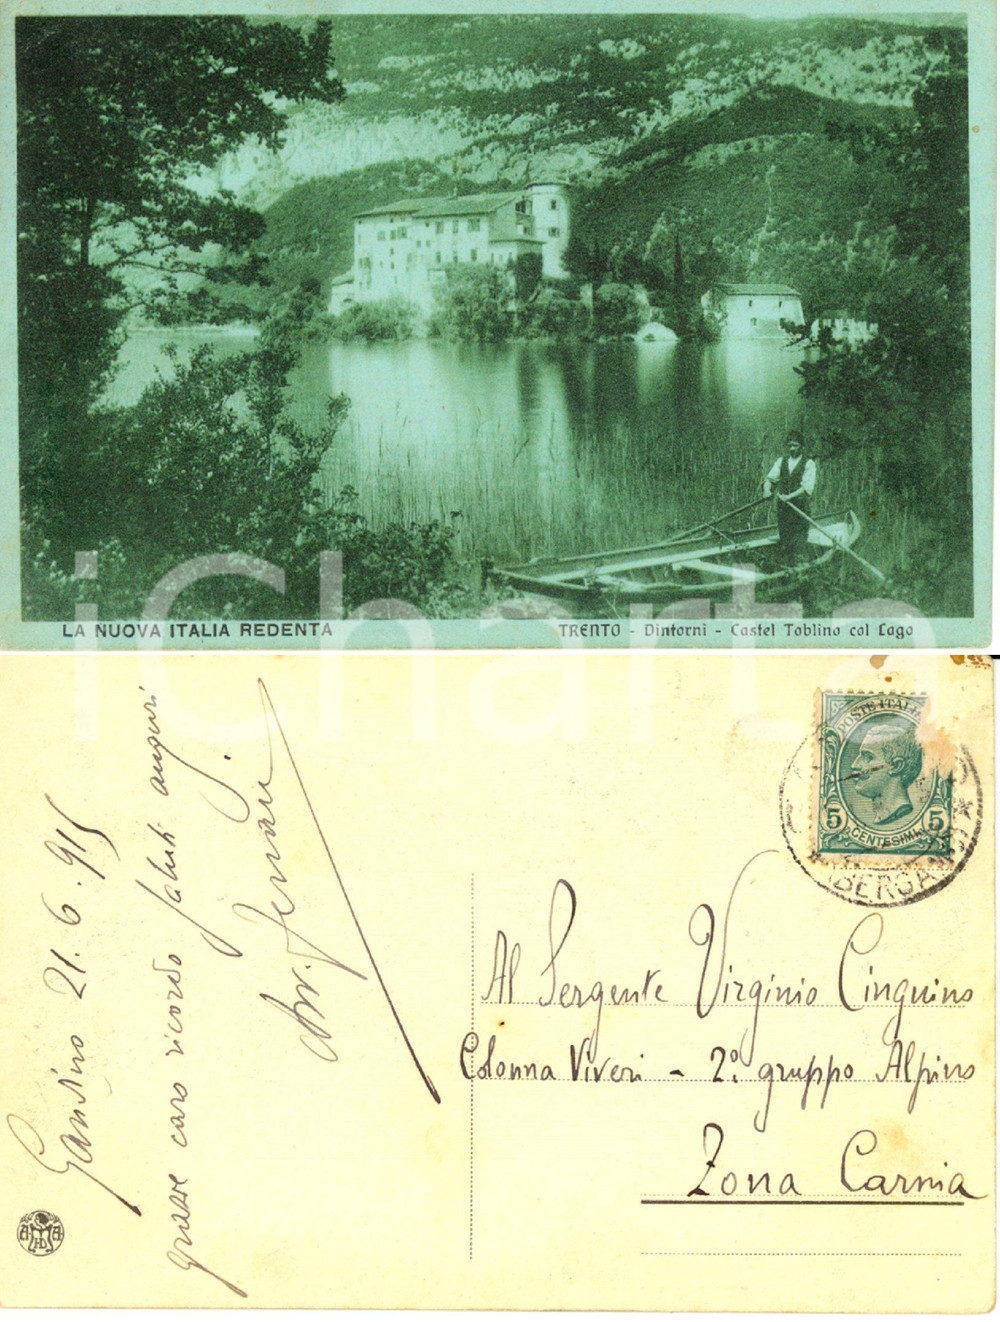 LA NUOVA ITALIA REDENTA
TRENTO - Dintorni - Castel Toblino col Lago
iCharta
Gandino 21.6.915
grazie caro ricordo saluti auguri
POSTE ITALIANE
5 CENTESIMI 5
BERGAMO
Al Sergente Virginio Cinquino
Colonna Viveri - 2º gruppo Alpino
Zona Carnia